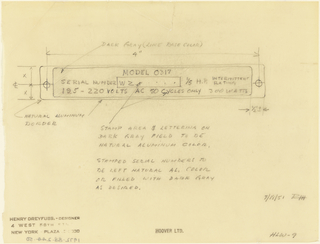 DARK GRAY
4"
MODEL 0317
SERIAL NUMBER W2
H.P. INTERMITTENT
RATING
195-220 VOLTS AC 50 CYCLES ONLY 300 WATTS
NATURAL ALUMINUM
BORDER
STAMP LINES & LETTERING ON
DARK GRAY FIELD TO BE
NATURAL ALUMINUM COLOR.
STAMPED SERIAL NUMBERS TO
BE LEFT NATURAL AL. COLOR
OR FILLED WITH DARK GRAY
AS DESIRED.
HENRY DREYFUSS · DESIGNER
4 WEST 58TH ST.
NEW YORK PLAZA
HOOVER LTD.